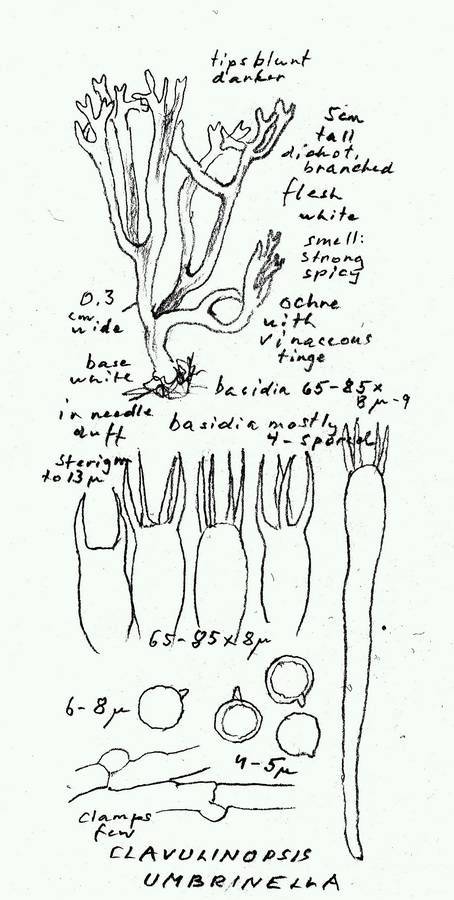 tips blunt
darker
5cm
tall
dichot.
branched
flesh
white
smell:
strong
spicy
0.3
cm
wide
ochre
with
vinaceous
tinge
base
white
basidia 65-85x
8μ-9
in needle
duff
basidia mostly
4-spored
sterigm
to 13μ
65-85x8μ
6-8μ
4-5μ
clamps
few
CLAVULINOPSIS
UMBRINELLA